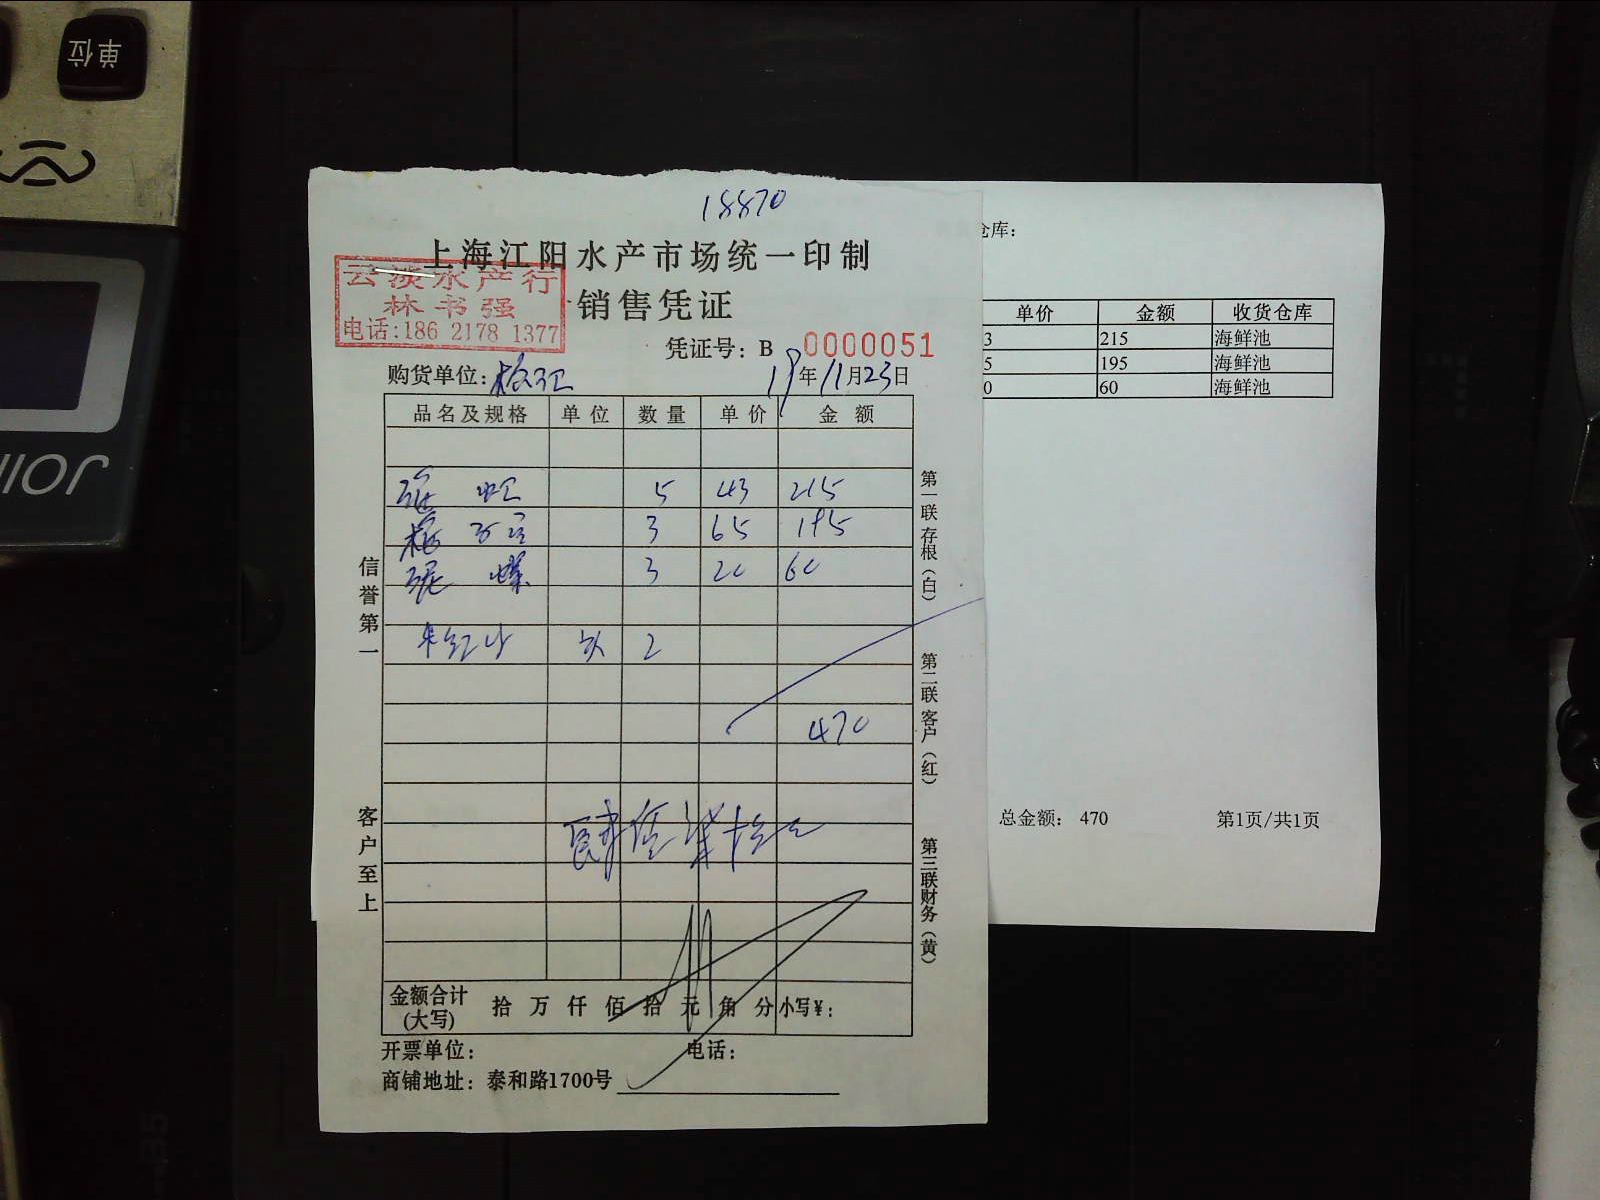 单位
JOII
18870
上海江阳水产市场统一印制
云淡水产行
林书强
电话:186 2178 1377
销售凭证
凭证号: B 0000051
购货单位: 格汇 19年11月23日
品名及规格 单位 数量 单价 金额
5 43 215
3 65 195
泥螺 3 20 60
2
470
肆佰柒拾元
金额合计(大写) 拾 万 仟 佰 拾 元 角 分 小写¥:
开票单位: 电话:
商铺地址: 泰和路1700号
信誉第一
客户至上
第一联存根(白)
第二联客户(红)
第三联财务(黄)
仓库:
单价 金额 收货仓库
3 215 海鲜池
5 195 海鲜池
0 60 海鲜池
总金额: 470 第1页/共1页